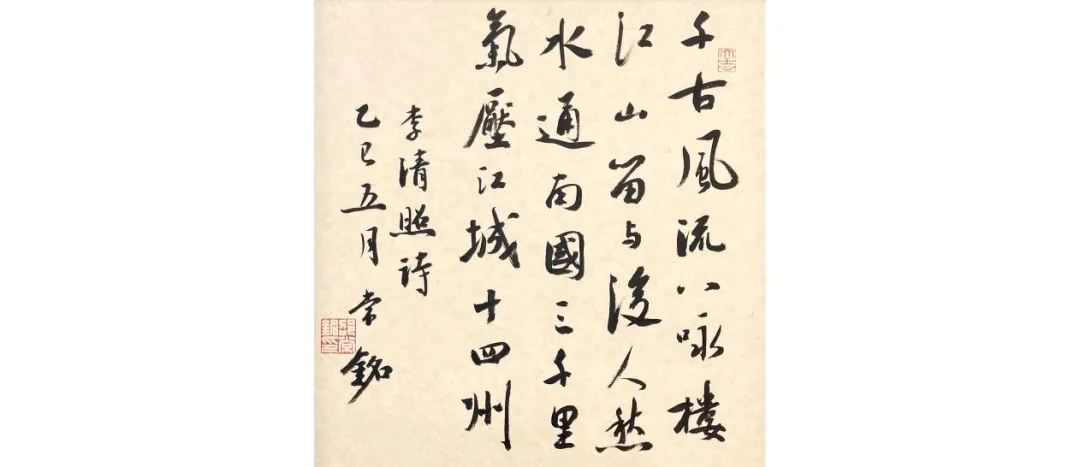 千古風流八咏樓
江山留与後人愁
水通南國三千里
氣壓江城十四州
李清照詩
乙巳五月常銘